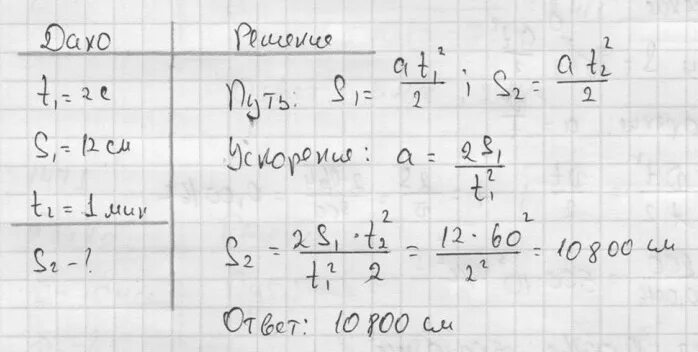 Дано
t₁ = 2 с
S₁ = 12 см
t₂ = 1 мин
S₂ – ?
Решение
Путь: S₁ = at₁²/2 ; S₂ = at₂²/2
Ускорение: a = 2S₁/t₁²
S₂ = 2S₁ · t₂²/t₁² 2 = 12 · 60²/2² = 10800 см
Ответ: 10800 см